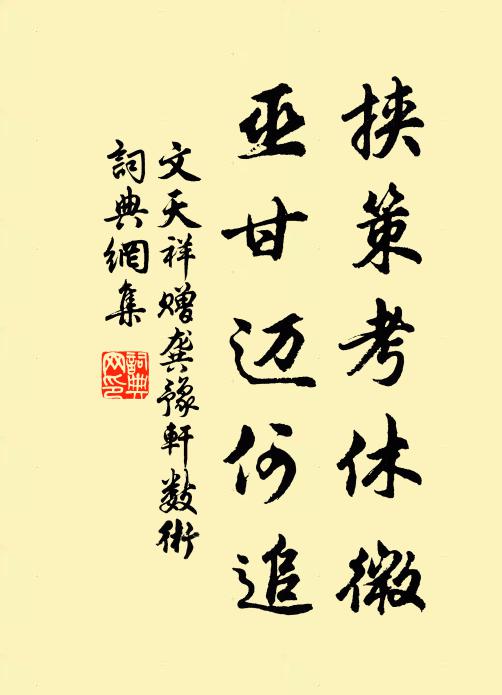 挟策考休微
巫甘迈何追
文天祥赠龚豫軒数術
詞典網集
詞典网印